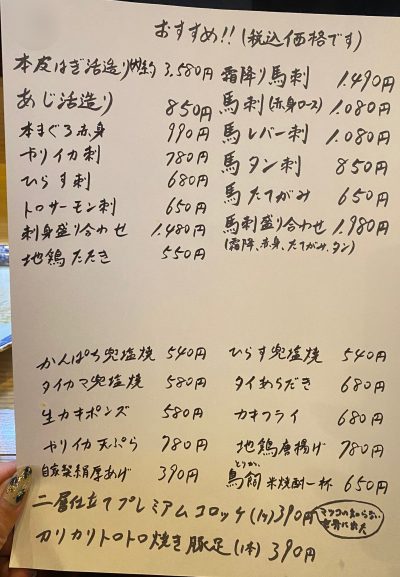 おすすめ!!(税込価格です)
本皮はぎ活造り 3,580円
あじ活造り 850円
本まぐろ赤身 990円
ヤリイカ刺 780円
ひらす刺 680円
トロサーモン刺 650円
刺身盛り合わせ 1,480円
地鶏たたき 550円
霜降り馬刺 1,490円
馬刺(赤身ロース) 1,080円
馬レバー刺 1,080円
馬タン刺 850円
馬たてがみ 650円
馬刺盛り合わせ 1,980円
(霜降、赤身、たてがみ、タン)
かんぱち兜塩焼 540円
タイカマ兜塩焼 580円
生カキポンズ 580円
ヤリイカ天ぷら 780円
自家製絹厚あげ 390円
ひらす兜塩焼 540円
タイあらだき 680円
カキフライ 680円
地鶏唐揚げ 780円
とりかい
鳥飼 米焼酎一杯 650円
二層仕立てプレミアムコロッケ(1ヶ)390円
マツコの知らない
世界に出た
カリカリトロトロ焼き豚足(1本)390円